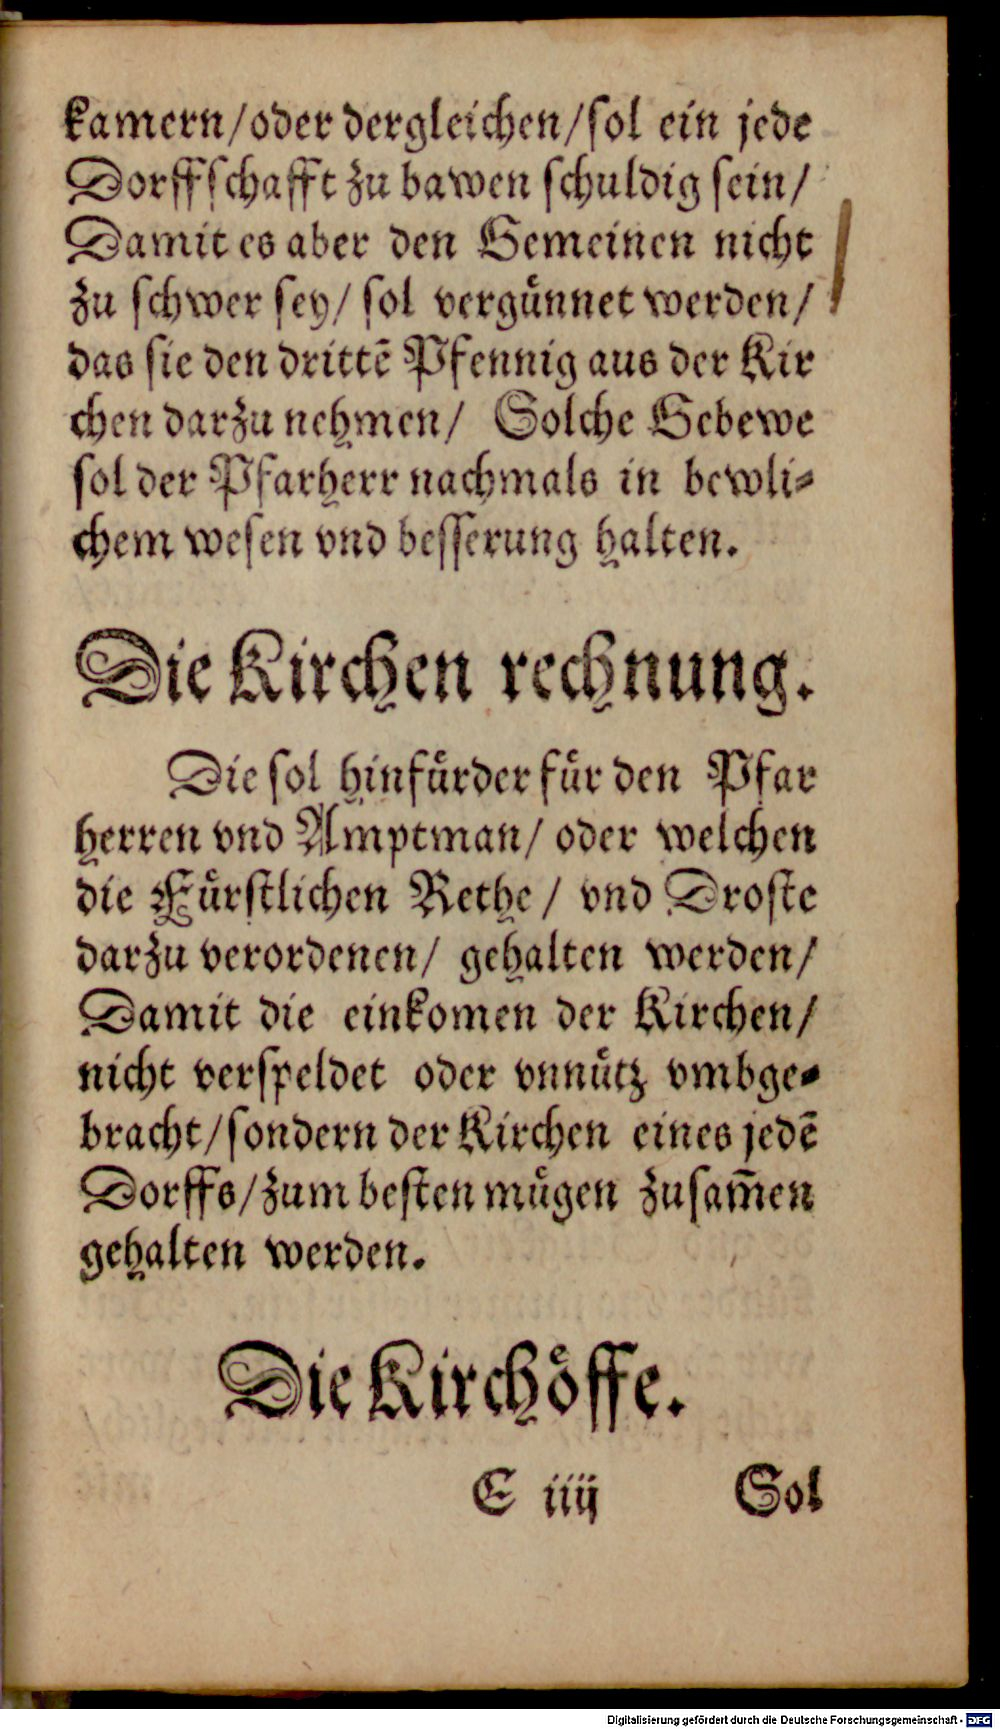 kamern/oder dergleichen/sol ein jede
Dorffschafft zu bawen schuldig sein/
Damit es aber den Gemeinen nicht
zu schwer sey/ sol vergünnet werden/
das sie den drittē Pfennig aus der Kir
chen darzu nehmen/ Solche Gebewe
sol der Pfarherr nachmals in bewli-
chem wesen vnd besserung halten.
Die Kirchen rechnung.
Die sol hinfürder für den Pfar
herren vnd Amptman/ oder welchen
die Fürstlichen Rethe/ vnd Droste
darzu verordenen/ gehalten werden/
Damit die einkomen der Kirchen/
nicht verspeldet oder vnnütz vmbge-
bracht/sondern der Kirchen eines jedē
Dorffs/zum besten mügen zusam̄en
gehalten werden.
Die Kirchöffe.
E iiij Sol
Digitalisierung gefördert durch die Deutsche Forschungsgemeinschaft - DFG